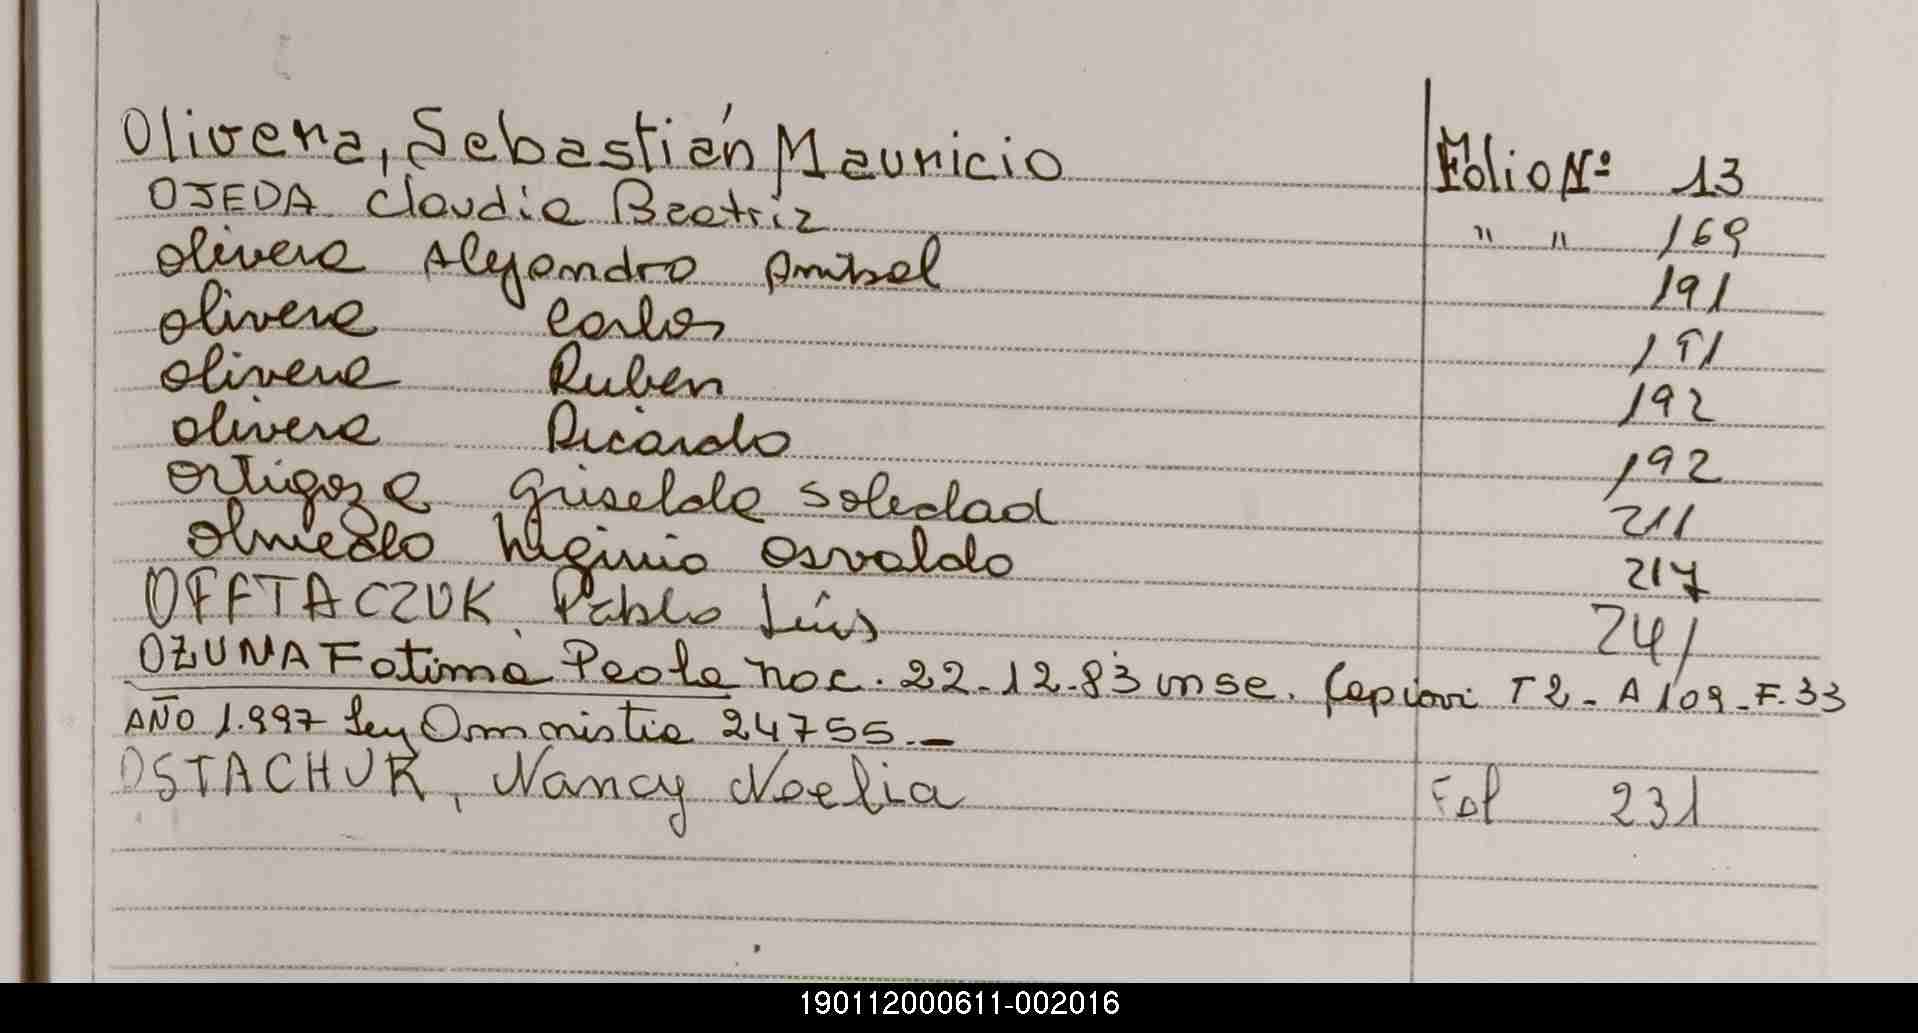 Olivera, Sebastián Mauricio Folio Nº 13
OJEDA Claudia Beatriz " " 169
olivera Alejandro Anibal 191
olivera Carlos 191
olivera Ruben 192
olivera Ricardo 192
ortigoza Griselda Soledad 211
olmedo higinio osvaldo 217
OFFTACZUK, Pablo Luis 241
OZUNA Fatima Paola nac. 22-12-83 inse. Capiovi T2-A109-F.33
AÑO 1.997 Ley Amnistia 24755.-
OSTACHUK, Nancy Noelia Fol 231
190112000611-002016